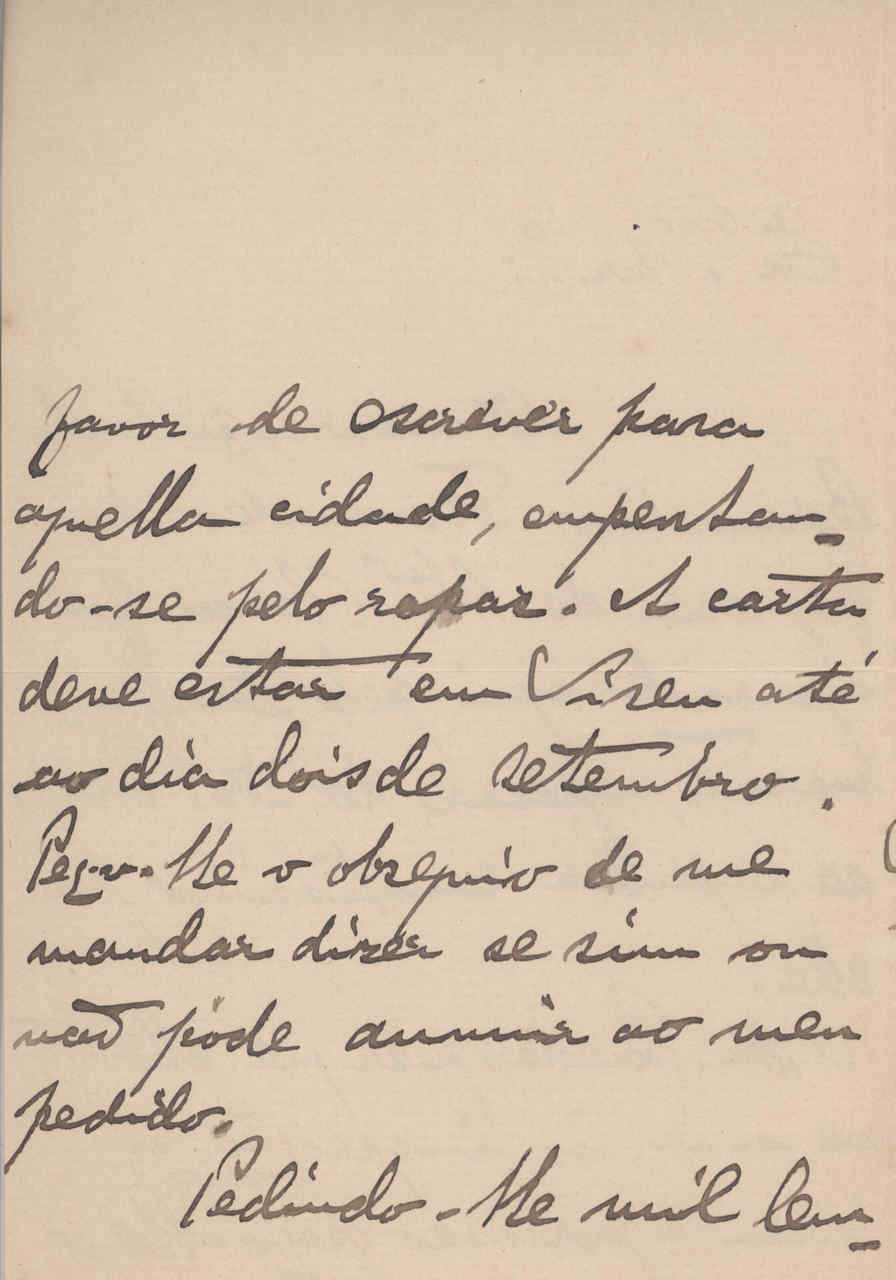 favor de escrever para
aquella cidade, empenhan-
do-se pelo rapaz. A carta
deve estar em Viseu até
ao dia dois de setembro.
Peço-lhe o obsequio de me
mandar dizer se sim ou
não póde annuir ao meu
pedido.
Pedindo-lhe mil lem-